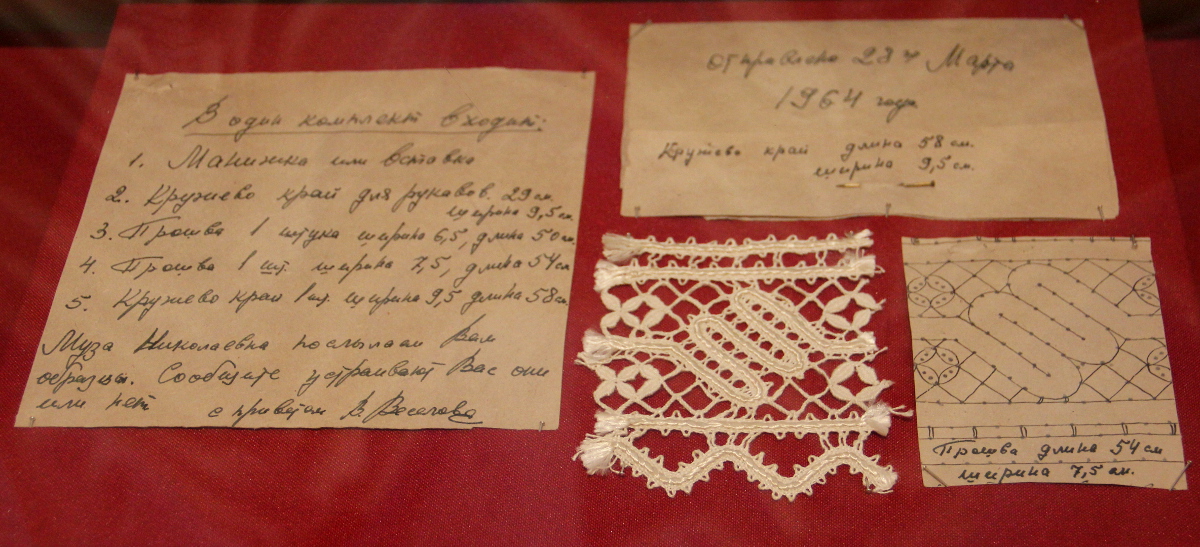 В один комплект входит:
1. Манишка или вставка
2. Кружево край для рукавов. 29 см.
ширина 9,5 см.
3. Прошва 1 штука ширина 6,5, длина 50 см.
4. Прошва 1 шт. ширина 7,5, длина 54 см
5. Кружево край 1 шт. ширина 9,5 длина 58 см.
Муза Николаевна посылаем Вам
образцы. Сообщите устраивают Вас они
или нет
с приветом В. Веселова
отправлено 28 Марта
1964 года
Кружево край длина 58 см.
ширина 9,5 см.
Прошва длина 54 см
ширина 7,5 см.